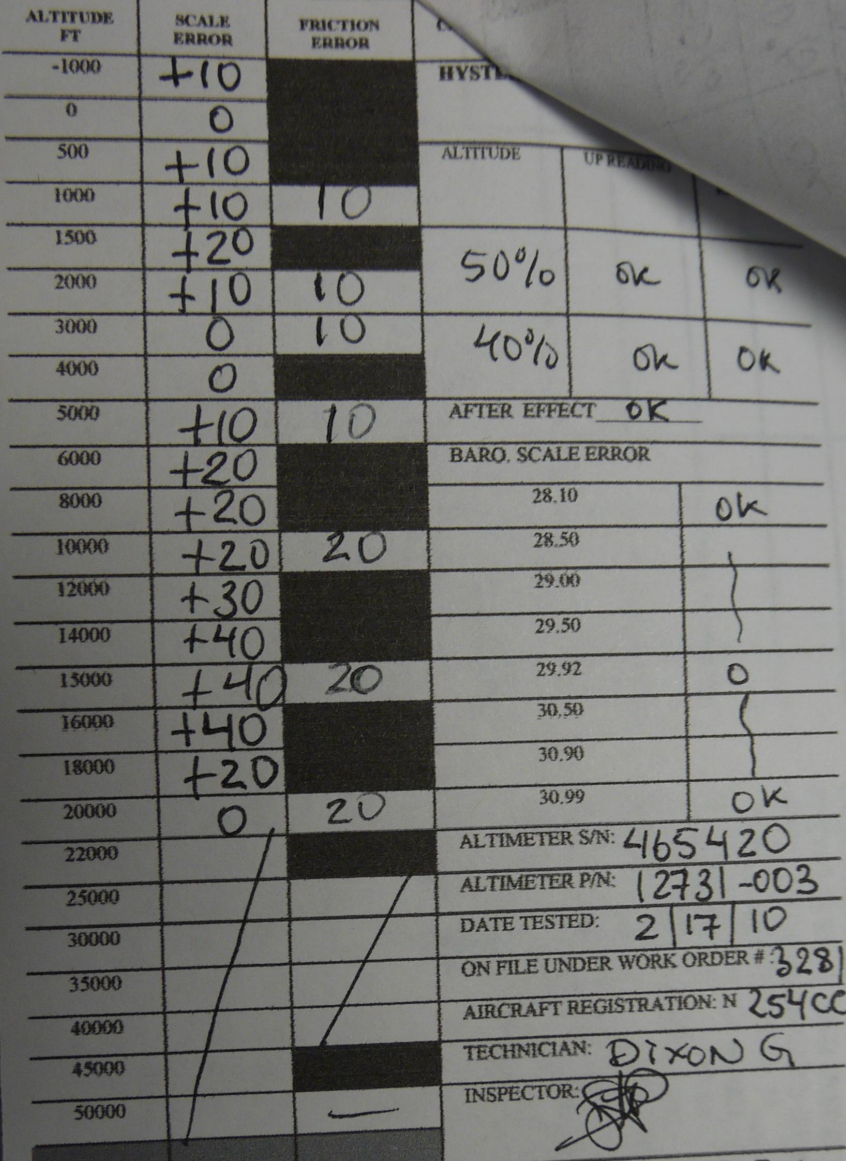 ALTITUDE FT SCALE ERROR FRICTION ERROR
-1000 +10
0 0
500 +10
1000 +10 10
1500 +20
2000 +10 10
3000 0 10
4000 0
5000 +10 10
6000 +20
8000 +20
10000 +20 20
12000 +30
14000 +40
15000 +40 20
16000 +40
18000 +20
20000 0 20
22000
25000
30000
35000
40000
45000
50000 —
ALTITUDE UP READING
50% OK OK
40% OK OK
AFTER EFFECT OK
BARO. SCALE ERROR
28.10 OK
28.50
29.00
29.50
29.92 0
30.50
30.90
30.99 OK
ALTIMETER S/N: 465420
ALTIMETER P/N: 12731-003
DATE TESTED: 2/17/10
ON FILE UNDER WORK ORDER #: 3281
AIRCRAFT REGISTRATION: N 254CC
TECHNICIAN: DIXON G
INSPECTOR: